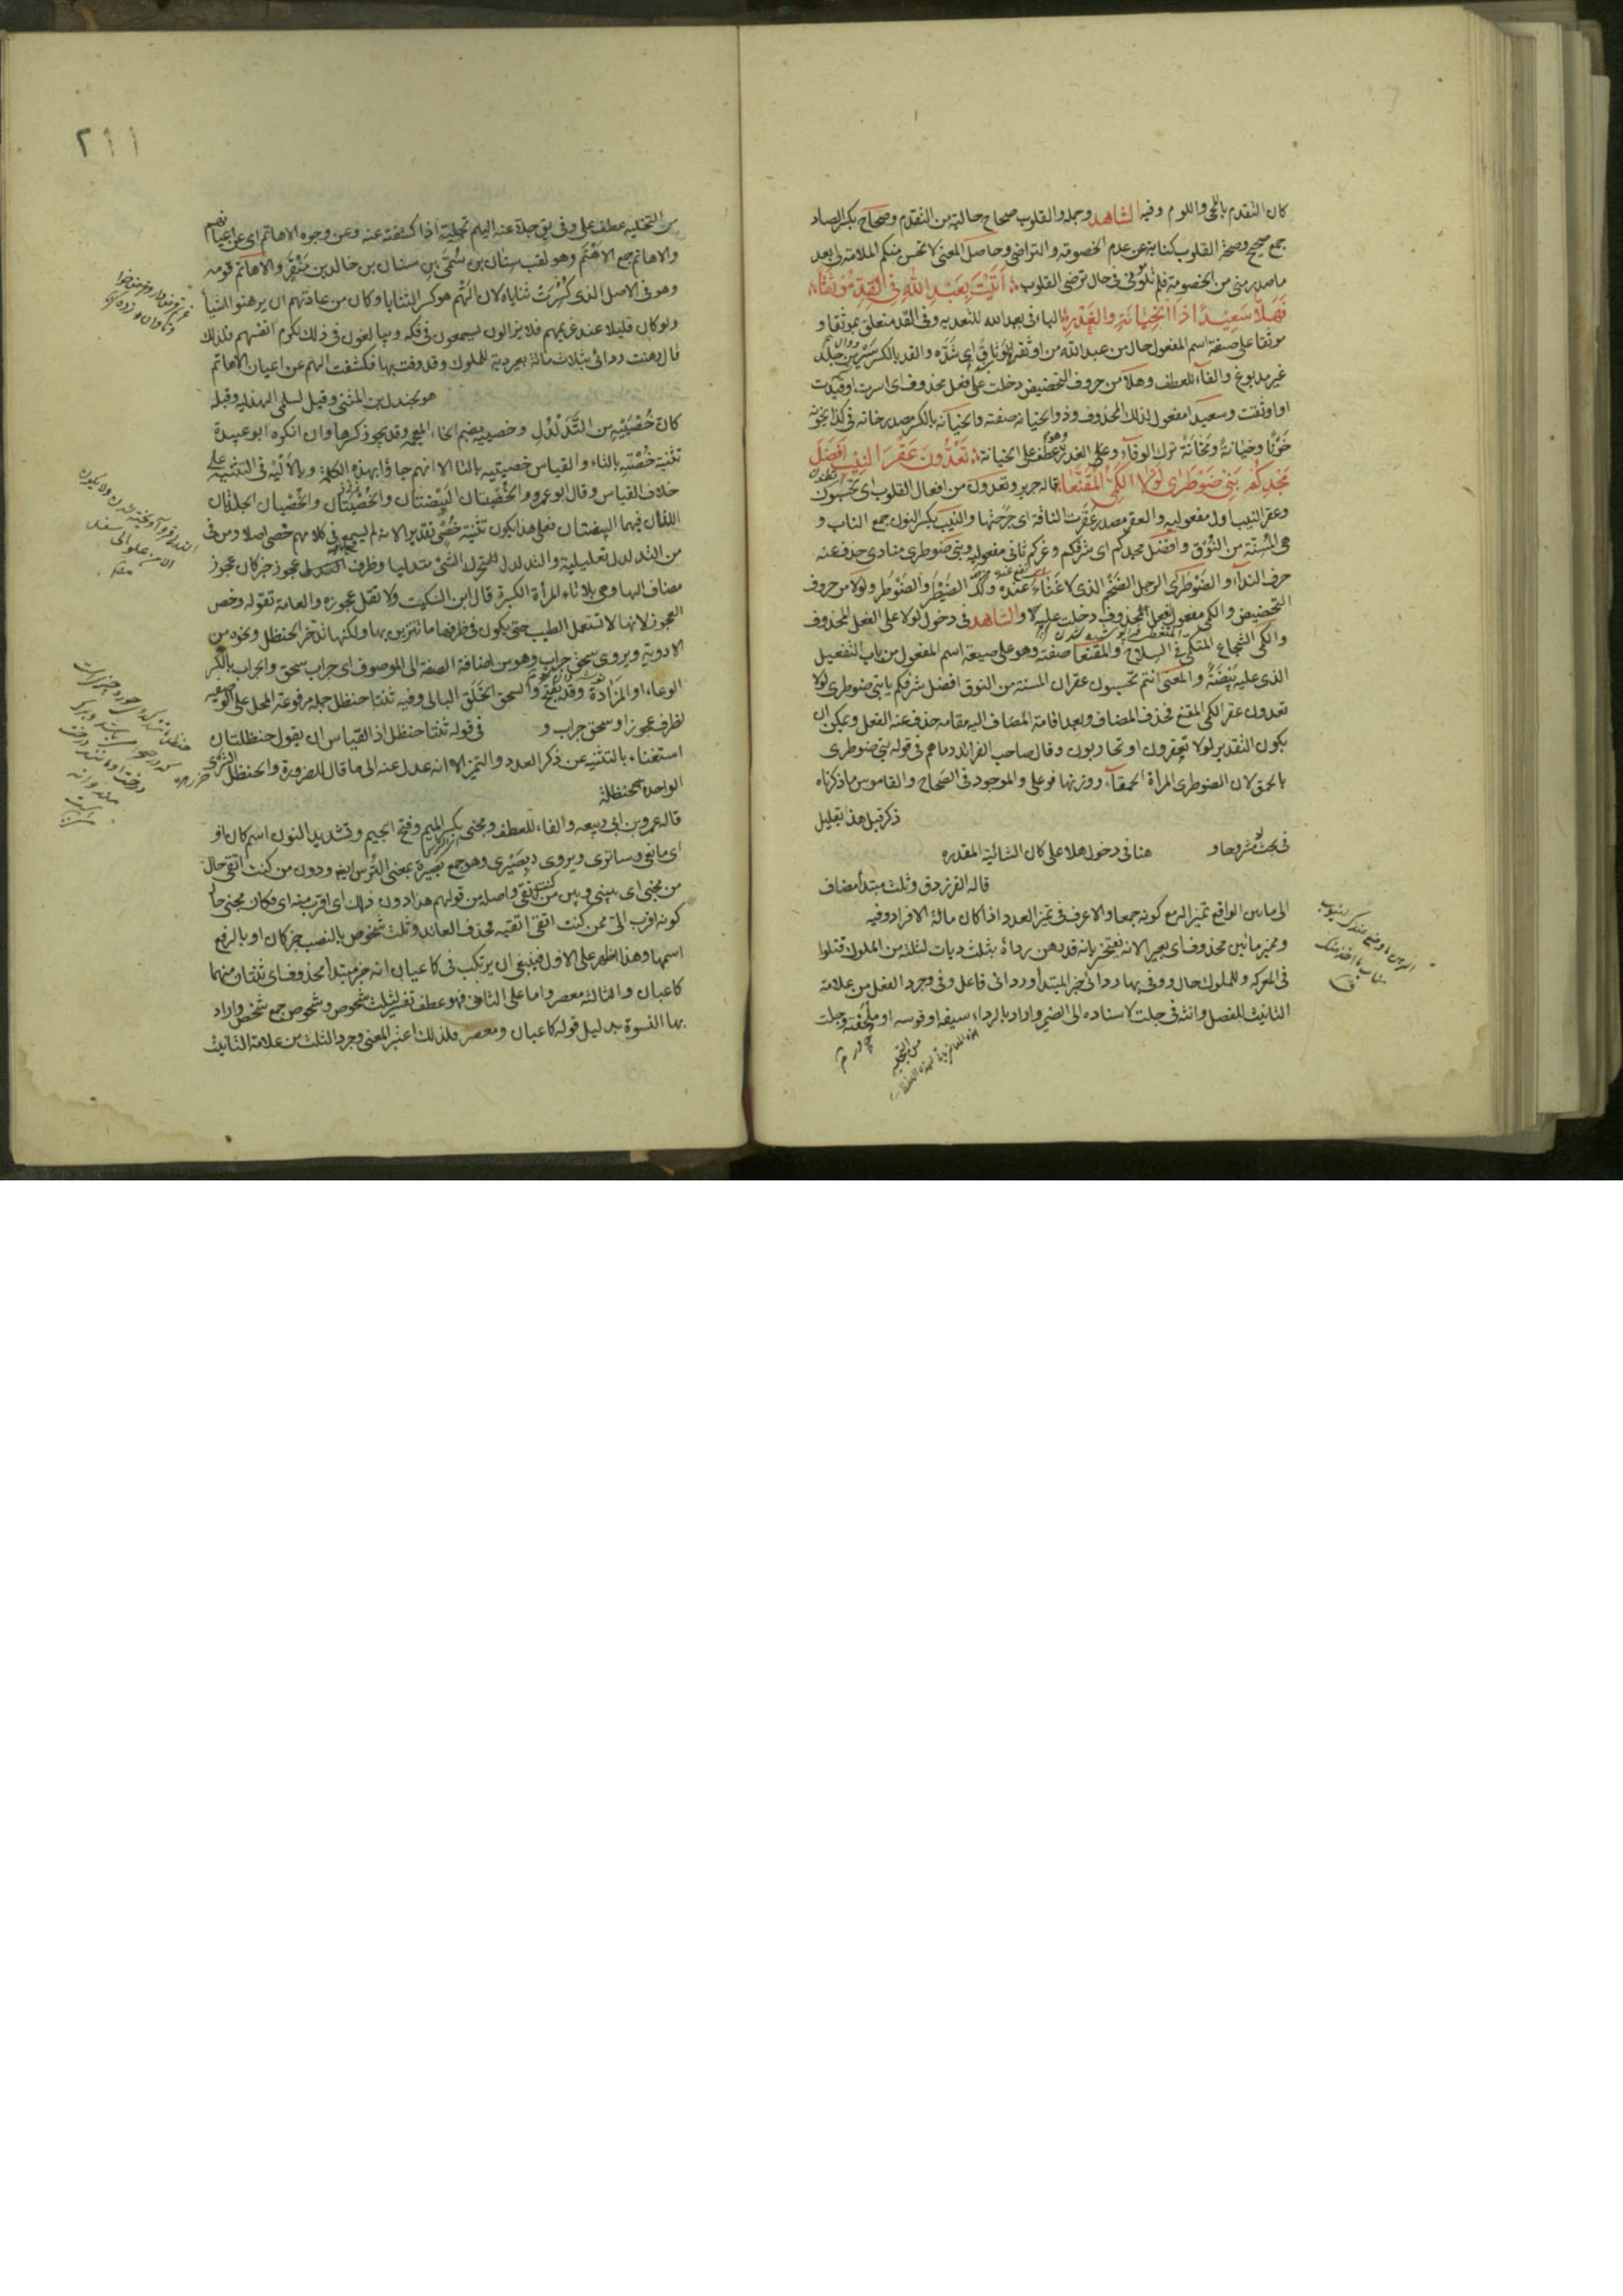 كان التقدم باللحى واللوم وفيه الشاهد وجملة والقلوب صحاح حالية من التقدم وصحاح بكسر الصاد
جمع صحيح وصحة القلوب كناية عن عدم الخصومة والتراضى وحاصل المعنى لا تحسن منكم الملامة لى بعد
ما صدر منى من الخصومة فلم تلومونى فى حال ترضى القلوب أتيت بعبد الله فى القد موثقا
فهلا سعيدا ذا الخيانة والغدر الباء فى بعبد الله للتعدية وفى القد متعلق بموثقا و
موثقا على صيغة اسم المفعول حال من عبد الله من اوثقه بالوثاق اى شده والقد بالكسر سير من جلد
غير مدبوغ والفاء للعطف وهلا من حروف التحضيض دخلت على فعل محذوف اى اسرت او قيدت
او اوثقت وسعيدا مفعول لذلك المحذوف وذو الخيانة صفته والخيانة بالكسر مصدر خانه فى كذا يخونه
خونا وخيانة ومخانة ترك الوفاء وهو عطف على الخيانة تعدون عقر النيب افضل
مجدكم بنى ضوطرى لولا الكمى المقنعا قاله جرير وتعدون من افعال القلوب اى تحسبون
وعقر النيب اول مفعوليه والعقر مصدر عقرت الناقة اى جرحتها والنيب بكسر النون جمع الناب و
هى المسنة من النوق وافضل مجدكم اى شرفكم وعزكم ثانى مفعوليه وبنى ضوطرى منادى حذف عنه
حرف النداء والضوطرى الرجل الضخم الذى لا غناء عنده وكذلك الضيطر والضوطر ولولا من حروف
التحضيض والكمى مفعول لفعل المحذوف دخلت عليه لولا والشاهد فى دخول لولا على الفعل المحذوف
والكمى الشجاع المتكمى فى السلاح والمقنعا صفته وهو على صيغة اسم المفعول من باب التفعيل
الذى عليه بيضة والمعنى انتم تحسبون عقر ان المسنة من النوق افضل شرفكم يا بنى ضوطرى لولا
تعدون عقر الكمى المقنع فحذف المضاف وبعد اقامة المضاف اليه مقامه حذف عنه الفعل ويمكن ان
يكون التقدير لولا تعقرون او تحاربون وقال صاحب الفرائد دماهم فى قوله بنى ضوطرى
بالحمق لان الضوطرى المرأة الحمقاء ووزنها فوعلى والموجود فى الصحاح والقاموس ما ذكرناه
ذكر قبل هذا بقليل
فى بحث مشروحا و هنا فى دخول هلا على كان الشانية المقدره
قاله الفرزدق وثلث مبتدأ مضاف
الى مائين الواقع تميزا لرمع كونه جمعا والاعرف فى تميز العدد اذا كان مائة الافراد وفيه
ومميز مائين محذوف اى بعير الانه يفتخر بانه قد رهن رداءه بثلث ديات لثلثة من الملوك قتلوا
فى المعركه وللملوك حال ووفى بها ردائى خبر المبتدأ وردائى فاعل وفى وجرد الفعل من علامة
التانيث للفصل وانثه فى جلت لاسناده الى الضمير واراد بالرداء سيفه او قوسه او ملحفته وجلت
من التجليه
٢١١
من التجليه عطف على وفى يق جلا عنه اليهم تجلية اذا كشفته عنه وعن وجوه الاهاتم اى عن اعيانهم
والاهاتم جمع الاهتم وهو لقب سنان بن سمى بن سنان بن خالد بن منقر والاهاتم قومه
وهو فى الاصل الذى كسرت ثناياه لان الهتم هو كسر الثنايا وكان من عادتهم ان يرهنوا الشيأ
ولو كان قليلا عند غريمهم فلا يزالون يسعون فى فكه ويبالغون فى ذلك لكرم انفسهم فلذلك
قال رهنت ردائى بثلاث مائة بعير دية للملوك وقد وفت بها فكشفت الهم عن اعيان الاهاتم
هو لجندل بن المثنى وقيل لسلمى الهذليه وقبله
كان خصييه من التدلدل وخصييه بضم الخاء المعجمه وقد يجوز كسرها وان انكره ابو عبيدة
تثنية خصية بالتاء والقياس خصيتيه بالتا الا انهم جاؤا بهذه الكلمة وبالألية فى التثنيه على
خلاف القياس وقال ابو عمرو والخصيتان البيضتان والخصيان الجلدتان
اللتان فيهما البيضتان فعلى هذا يكون تثنية خصى تقديرا لانه لم يسمع فى كلامهم خصى اصلا ومن فى
من التدلدل تعليلية والتدلدل التحرك الشئ متدليا وظرف عجوز خبر كان وعجوز
مضاف اليها وهى بلا تاء للمرأة الكبيرة قال ابن السكيت ولا تقل عجوزه والعامة تقوله وخص
العجوز لانها لا تستعمل الطيب حتى يكون فى ظرفها ما تتزين بها ولكنها تدخر الحنظل ونحوه من
الادوية ويروى سحق جراب وهو من اضافة الصفة الى الموصوف اى جراب سحق والجراب بالكسر
الوعاء او المزادة وقد يفتح والسحق الخلق البالى وفيه ثنتا حنظل جملة مرفوعة المحل على الوصفيه
لظرف عجوز او سحق جراب و فى قوله ثنتا حنظل اذ القياس ان يقول حنظلتان
استغناء بالتثنيه عن ذكر العدد والتميز الا انه عدل عنه الى ما قال للضرورة والحنظل الشرى
الواحدة الحنظلة
قاله عمرو بن ابى ربيعه والفاء للعطف ومجنى بكسر الميم وفتح الجيم وتشديد النون اسم كان او
اى مانعى وساترى ويروى بصيرى وهو جمع بصيرة بمعنى الترس ايضا ودون من كنت اتقى حال
من مجنى اى بينى وبين من كنت اتقى واصله من قولهم هذا دون ذلك اى اقرب منه اى فكان مجنى حال
كونه اقرب الى ممن كنت اتقى اتقيه فحذف العائد وثلث شخوص بالنصب خبر كان او بالرفع
اسمها وهذا اظهر على الاول فينبغى ان يرتكب فى كاعبان انه خبر مبتدأ محذوف اى ثنتان منهما
كاعبان والثالثة معصر واما على الثانى فهو عطف تفسير لثلث شخوص وشخوص جمع شخص واراد
بها النسوة بدليل قوله كاعبان ومعصر فلذلك اعتبر المعنى وجرد الثلث من علامة التانيث